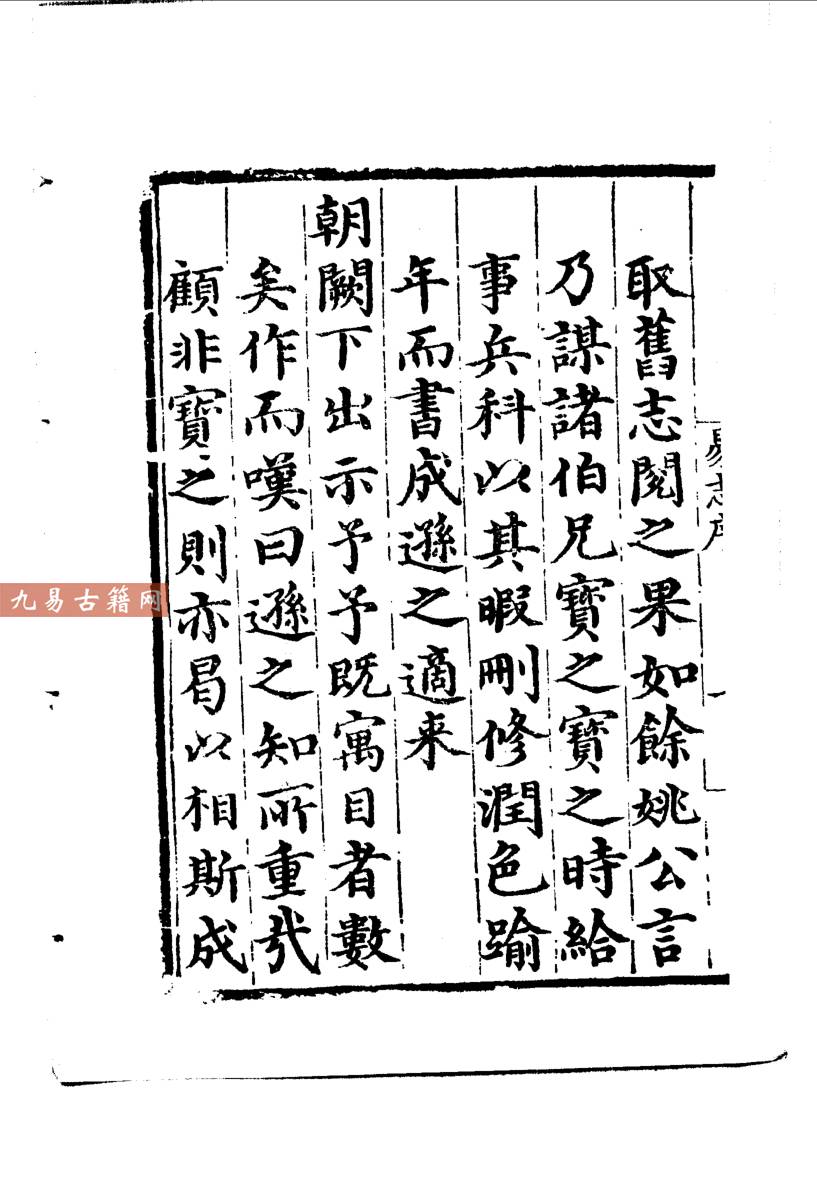 取舊志閱之果如餘姚公言
乃謀諸伯兄寶之寶之時給
事兵科以其暇刪修潤色踰
年而書成遜之適来
朝闕下出示予予既寓目者數
矣作而嘆曰遜之知所重㢤
顧非寶之則亦曷以相斯成
志序
九易古籍网